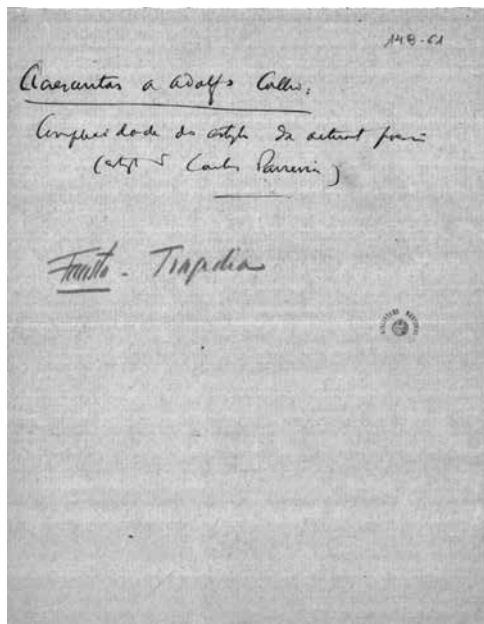 148-61
Acrescentar a Adolfo Coelho:
Complexidade do estylo da actual poesia
(estylo de Carlos Parreira)
Fausto - Tragedia
BIBLIOTECA NACIONAL